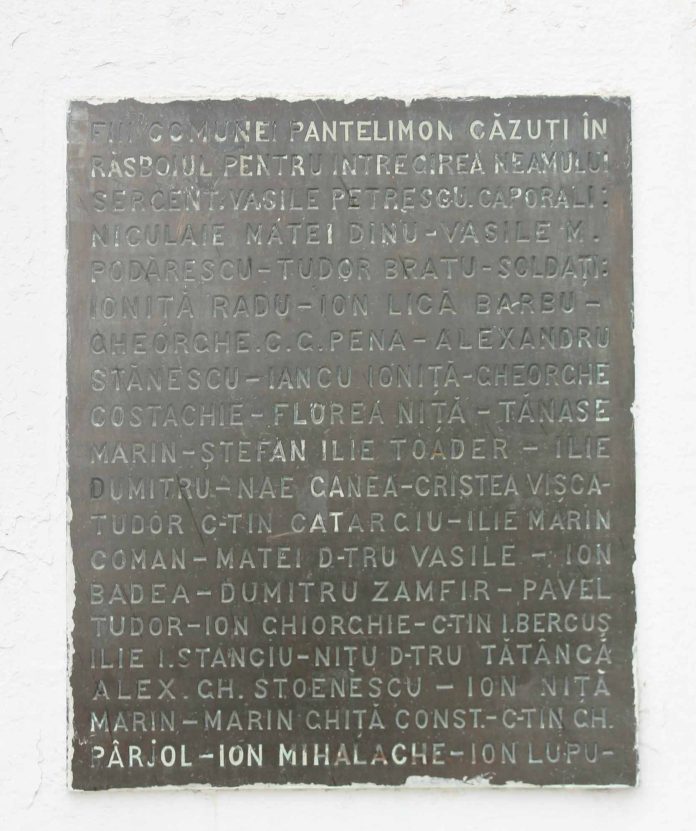 FIII COMUNEI PANTELIMON CĂZUȚI ÎN
RĂSBOIUL PENTRU INTREGIREA NEAMULUI
SERGENT: VASILE PETRESCU. CAPORALI:
NICULAIE MATEI DINU-VASILE M.
PODARESCU-TUDOR BRATU-SOLDAȚI:
IONIȚĂ RADU-ION LICĂ BARBU-
GHEORGHE.C.G.PENA-ALEXANDRU
STĂNESCU-IANCU IONIȚĂ-GHEORGHE
COSTACHIE-FLOREA NIȚĂ-TĂNASE
MARIN-ȘTEFAN ILIE TOADER-ILIE
DUMITRU.-NAE GANEA-CRISTEA VIȘCA-
TUDOR C-TIN CATARGIU-ILIE MARIN
COMAN-MATEI D-TRU VASILE-ION
BADEA-DUMITRU ZAMFIR-PAVEL
TUDOR-ION GHIORGHIE-C-TIN I.BERCUȘ
ILIE I.STANCIU-NIȚU D-TRU TĂTÂNCĂ
ALEX.GH.STOENESCU-ION NIȚĂ
MARIN-MARIN GHIȚĂ CONST.-C-TIN GH.
PÂRJOL-ION MIHALACHE-ION LUPU-